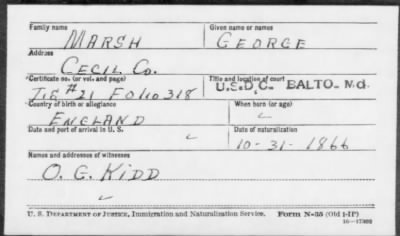 Family name Given name or names
MARSH GEORGE
Address
CECIL CO.
Certificate no. (or vol. and page) Title and location of court
T.E #21 FOLIO 318 U.S.D.C. BALTO. Md.
Country of birth or allegiance When born (or age)
ENGLAND
Date and port of arrival in U. S. Date of naturalization
10-31-1866
Names and addresses of witnesses
O. G. KIDD
U. S. DEPARTMENT OF JUSTICE, Immigration and Naturalization Service. Form N-35 (Old 1-IP)
16—17302